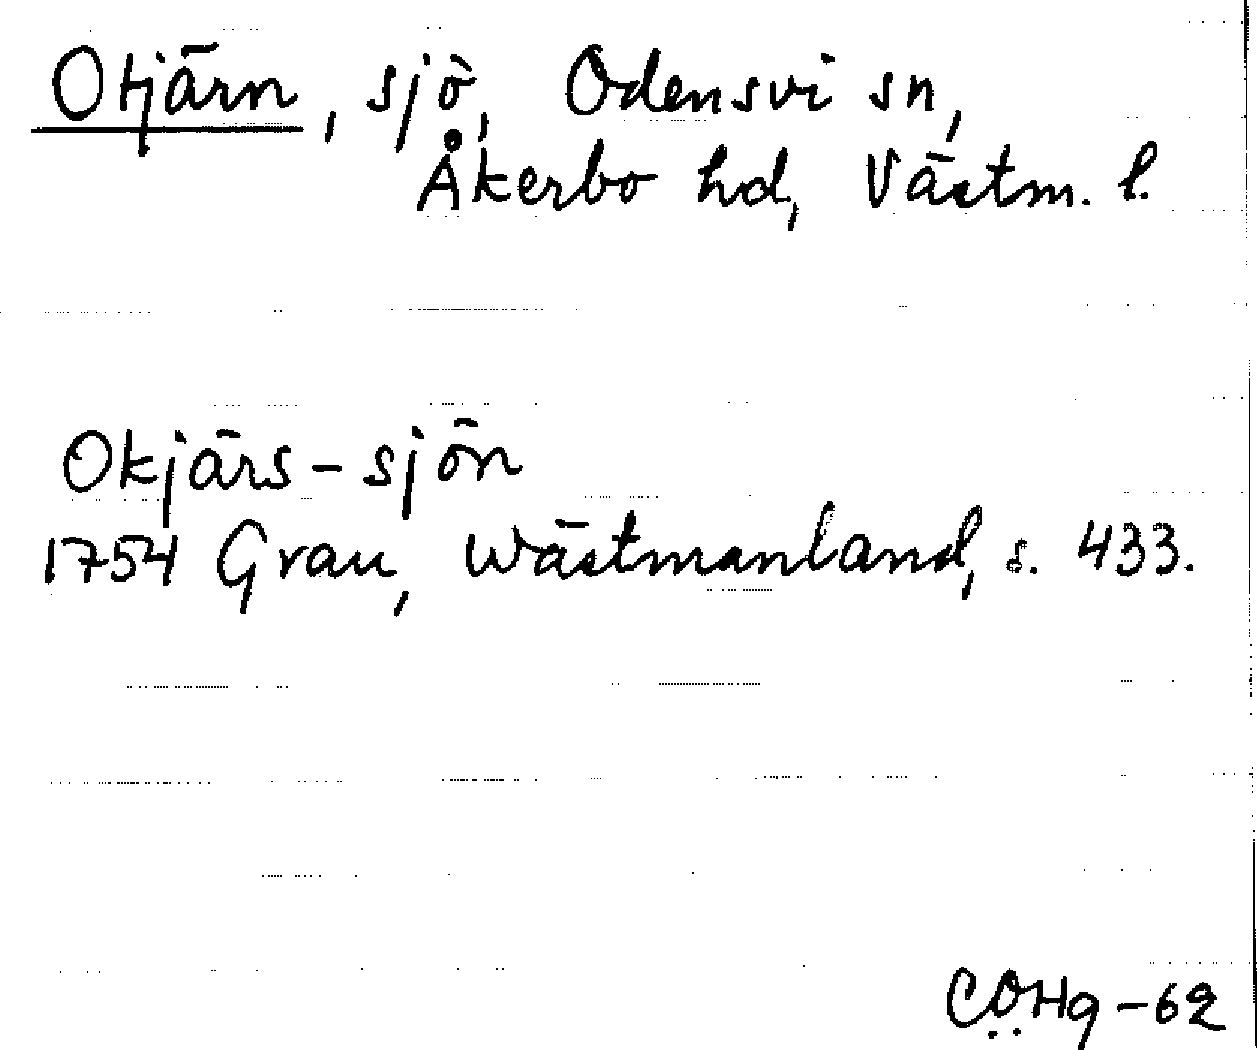 Otjärn, sjö, Odensvi sn,
Åkerbo hd, Västm. l.
Okjärs-sjön
1754 Grau, Wästmanland, s. 433.
CÖHg-62